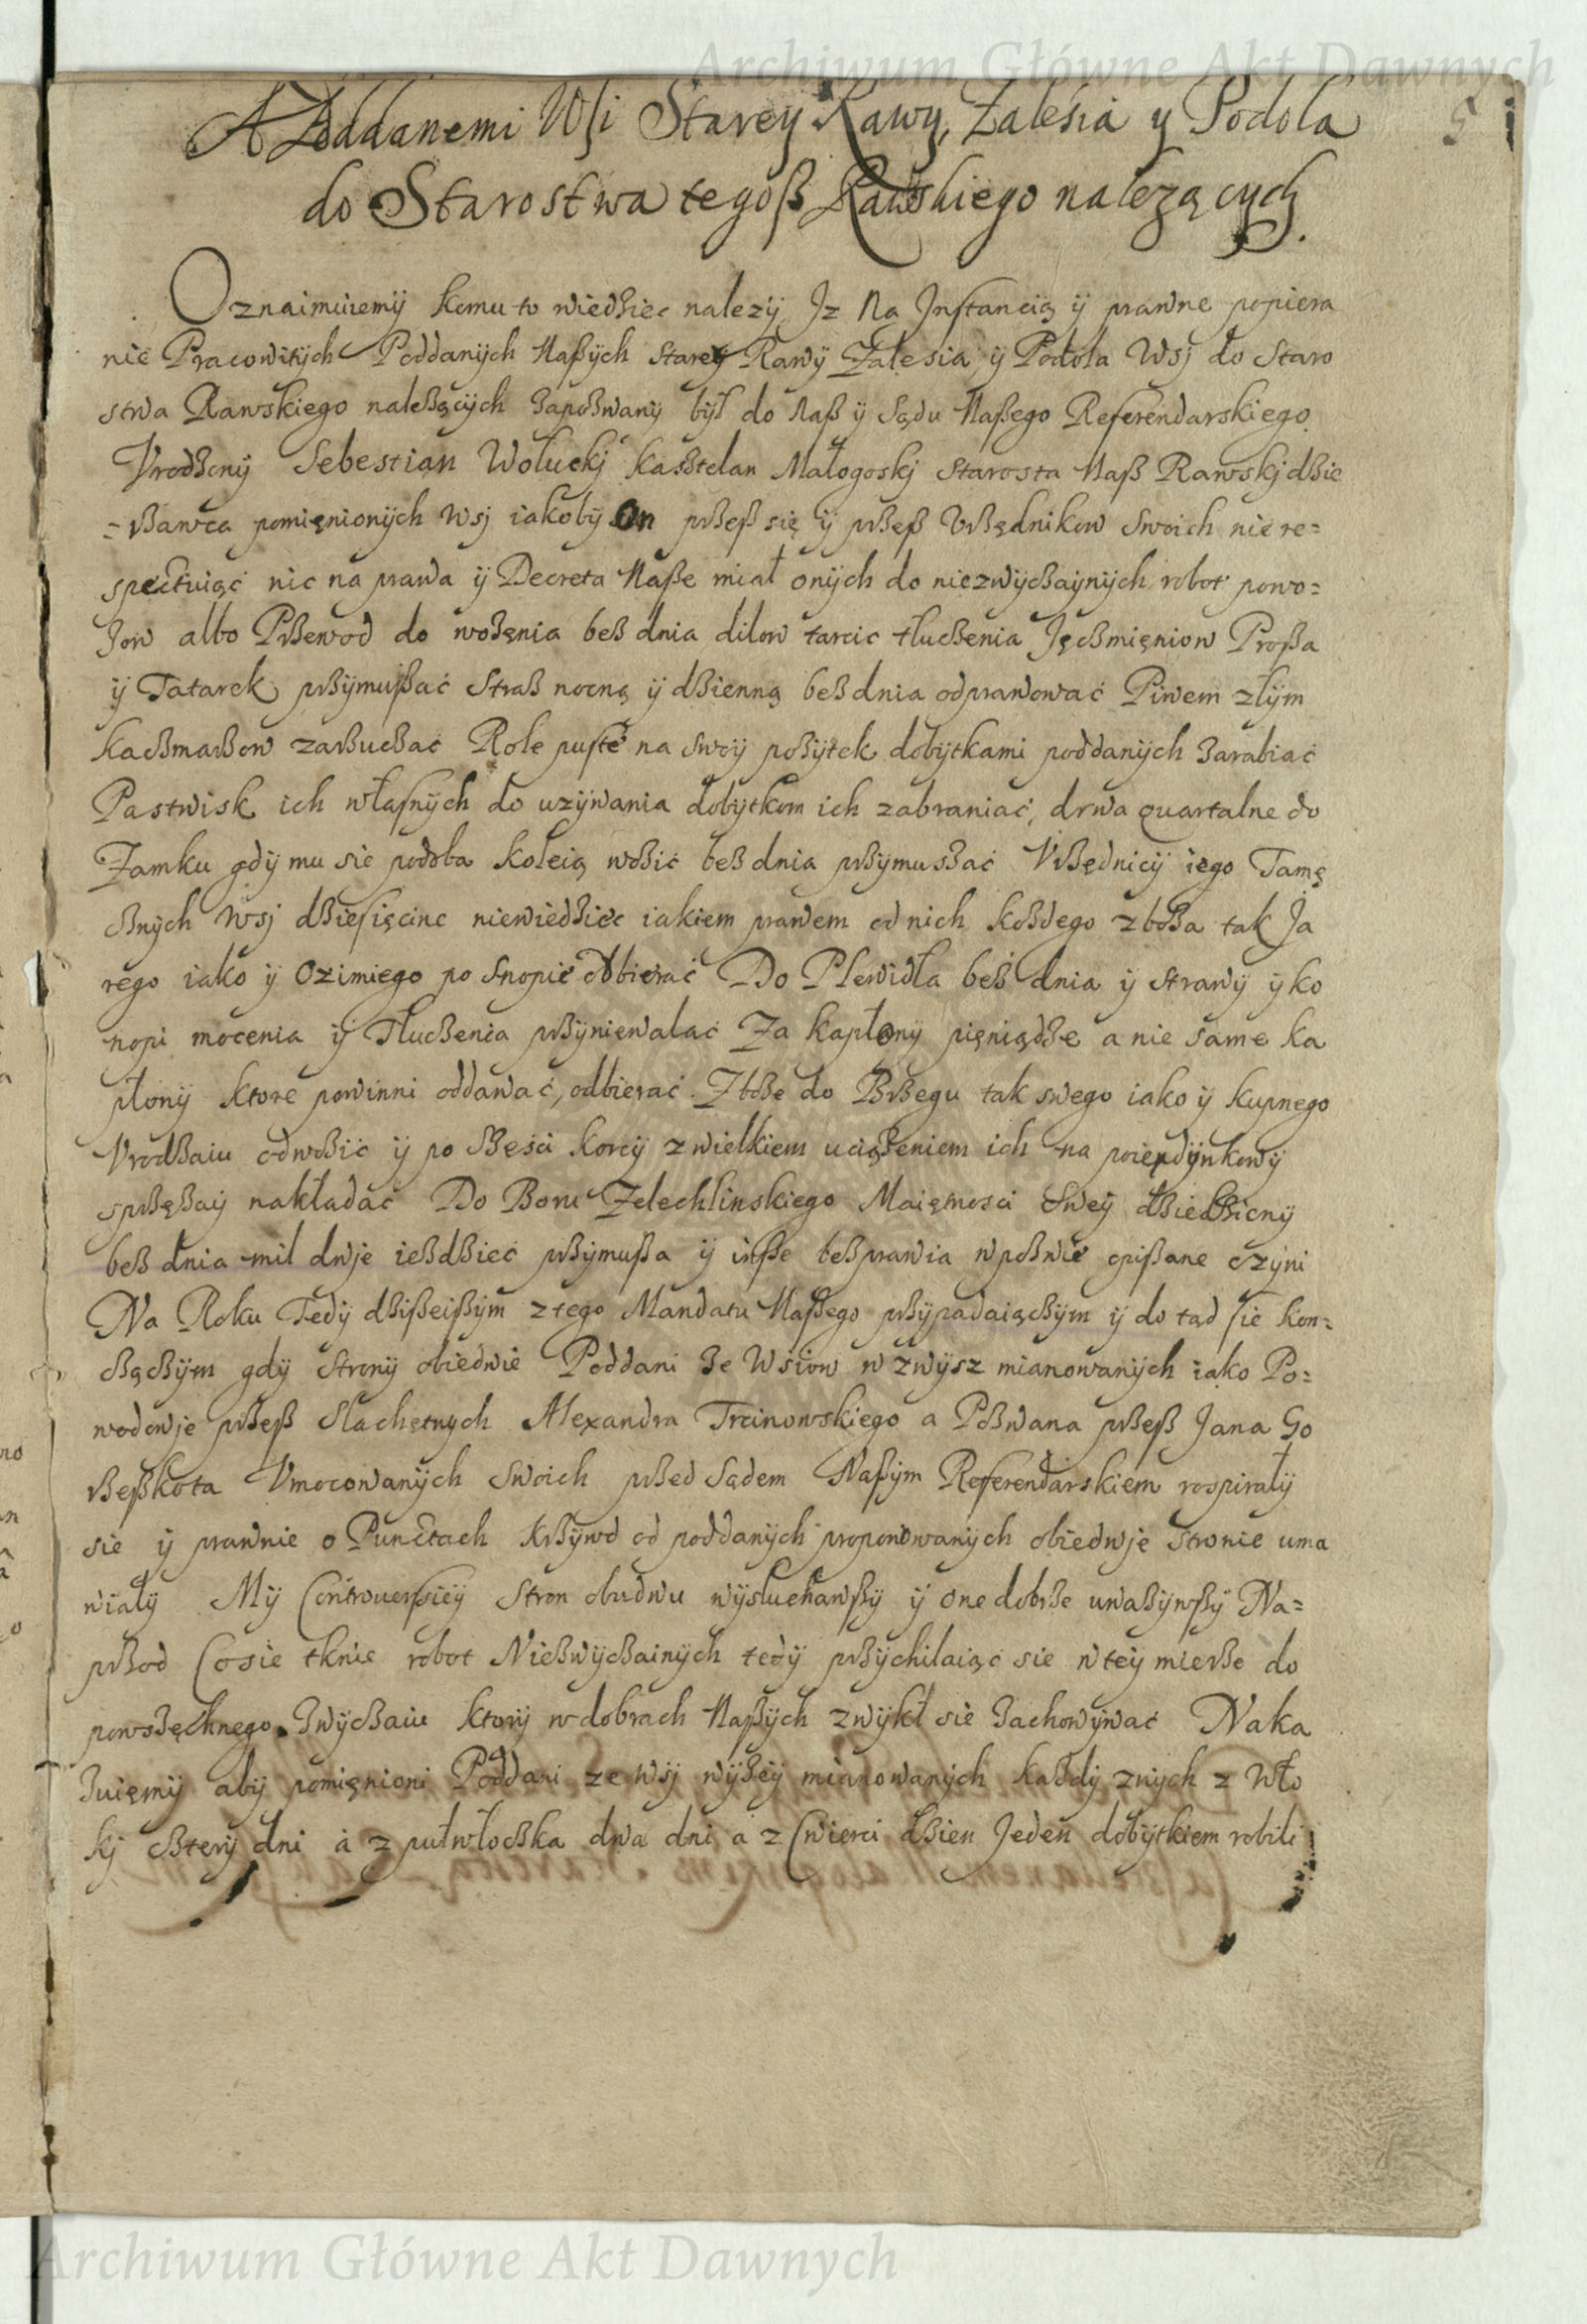 Archiwum Główne Akt Dawnych
5
A Poddanemi Wsi Starey Rawy, Zalesia y Podola
do Starostwa tegoß Rawskiego nalezących.
Oznaimuiemÿ komu to wiedżiec nalezÿ Jz Na Jnstancią ÿ prawne popiera
nie Pracowitÿch Poddanÿch Naßÿch Starey Rawÿ Zalesia ÿ Podola Wsj do Staro
stwa Rawskiego należącÿch Zapożwanÿ bÿł do Naß ÿ Sądu Naßego Referendarskiego
Vrodżenÿ Sebestian Wołuckj Kasztelan Małogoskj Starosta Naß Rawskj dżie
=rżawca pomięnionÿch Wsj iakobÿ On przeß się ÿ przeß Vrżędnikow Swoich nie re=
spectuiąć nic na prawa ÿ Decreta Naße miał onÿch do niezwÿcżaÿnÿch robot powo=
zow albo Przewod do wożęnia beż dnia dilow tarcic tłucżenia Jęcżmięniow Proßa
ÿ Tatarek przÿmußać Straż nocną ÿ dżienną beż dnia odprawować Piwem złÿm
kacżmarżow zarżucżać Role puste na swoÿ pożÿtek dobÿtkami poddanÿch Zarabiać
Pastwisk ich własnÿch do uzÿwania dobÿtkom ich zabraniać, drwa quartalne do
Zamku gdÿ mu sie podoba koleią wożić beż dnia przÿmuszać Vrżędnicÿ iego Tamę
cżnÿch Wsj dżiesięcine niewiedżiec iakiem prawem od nich każdego zboża tak Ja
rego iako ÿ Ozimiego po snopie odbierać Do Plewidła beż dnia ÿ strawÿ ÿ ko
nopi mocenia ÿ Tłucżenia przÿniewalać Za kapłonÿ pięniądże a nie same ka
płonÿ ktore powinni oddawać, odbierać. Zboże do Brżegu tak swego iako ÿ kupnego
Vrodżaiu odwożić ÿ po sżęsci korcÿ z wielkiem uciążeniem ich na poiędÿnkowÿ
sprzężaÿ nakładać Do Boru Zelechlinskiego Maięmosci Sweÿ dżiedżicnÿ
beż dnia mil dwie ieżdżieć przÿmußa ÿ inße beżprawia w pożwie opißane czÿni
Na Roku Tedÿ dżißeißÿm z tego Mandatu Naßego przÿpadaiącżÿm ÿ do tąd sie kon=
cżącżÿm gdÿ Stronÿ obiedwie Poddani Ze Wsiow w zwÿsz mianowanÿch iako Po=
wodowje przeß Slachętnych Alexandra Trcinowskiego a Pożwana przeß Jana Go
rżeßkota Vmocowanÿch Swoich przed Sądem Naßÿm Referendarskiem rospirałÿ
sie ÿ prawnie o Punctach krżÿwd od poddanÿch proponowanÿch obiedwje stronie uma
wiałÿ MÿControuersieÿ Stron obudwu wÿsłuchawßÿ ÿ one dobrże uważÿwßÿ Na=
przod Co sie tknie robot Nieżwÿcżainÿch tedÿ przÿchilaiąc sie w teÿ mierże do
powszęchnego Zwÿcżaiu ktorÿ w dobrach Naßÿch zwÿkł sie Zachowÿwać Naka
Zuięmÿ abÿ pomięnioni Poddani ze wsj wÿżeÿ mianowanÿch każdÿ znich z Wło
kj cżterÿ dni a z pułwłocżka dwa dni a z Cwierci dżien Jeden dobÿtkiem robili
Archiwum Główne Akt Dawnych